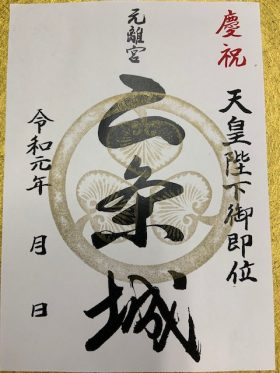 慶祝
天皇陛下御即位
元離宮
二条城
令和元年　月　日